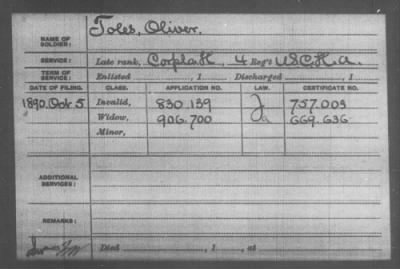 NAME OF SOLDIER: Toles, Oliver.
SERVICE: Late rank, Corpl a H, 4 Reg't U.S.C.H.A.
TERM OF SERVICE: Enlisted , 1 Discharged , 1
DATE OF FILING. CLASS. APPLICATION NO. LAW. CERTIFICATE NO.
1890, Oct 5 Invalid, 830.139 J 757.003
Widow, 906.700 Ja 669.636
Minor,
ADDITIONAL SERVICES:
REMARKS:
Died , 1 , at